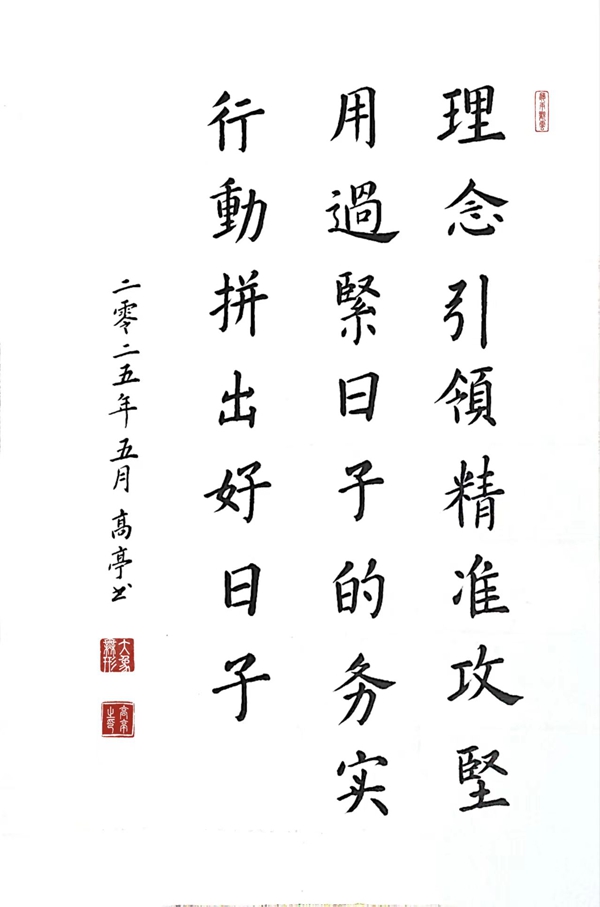 理念引領精准攻堅
用過緊日子的务实
行動拼出好日子
二零二五年五月高亭书
大象無形
高亭之印